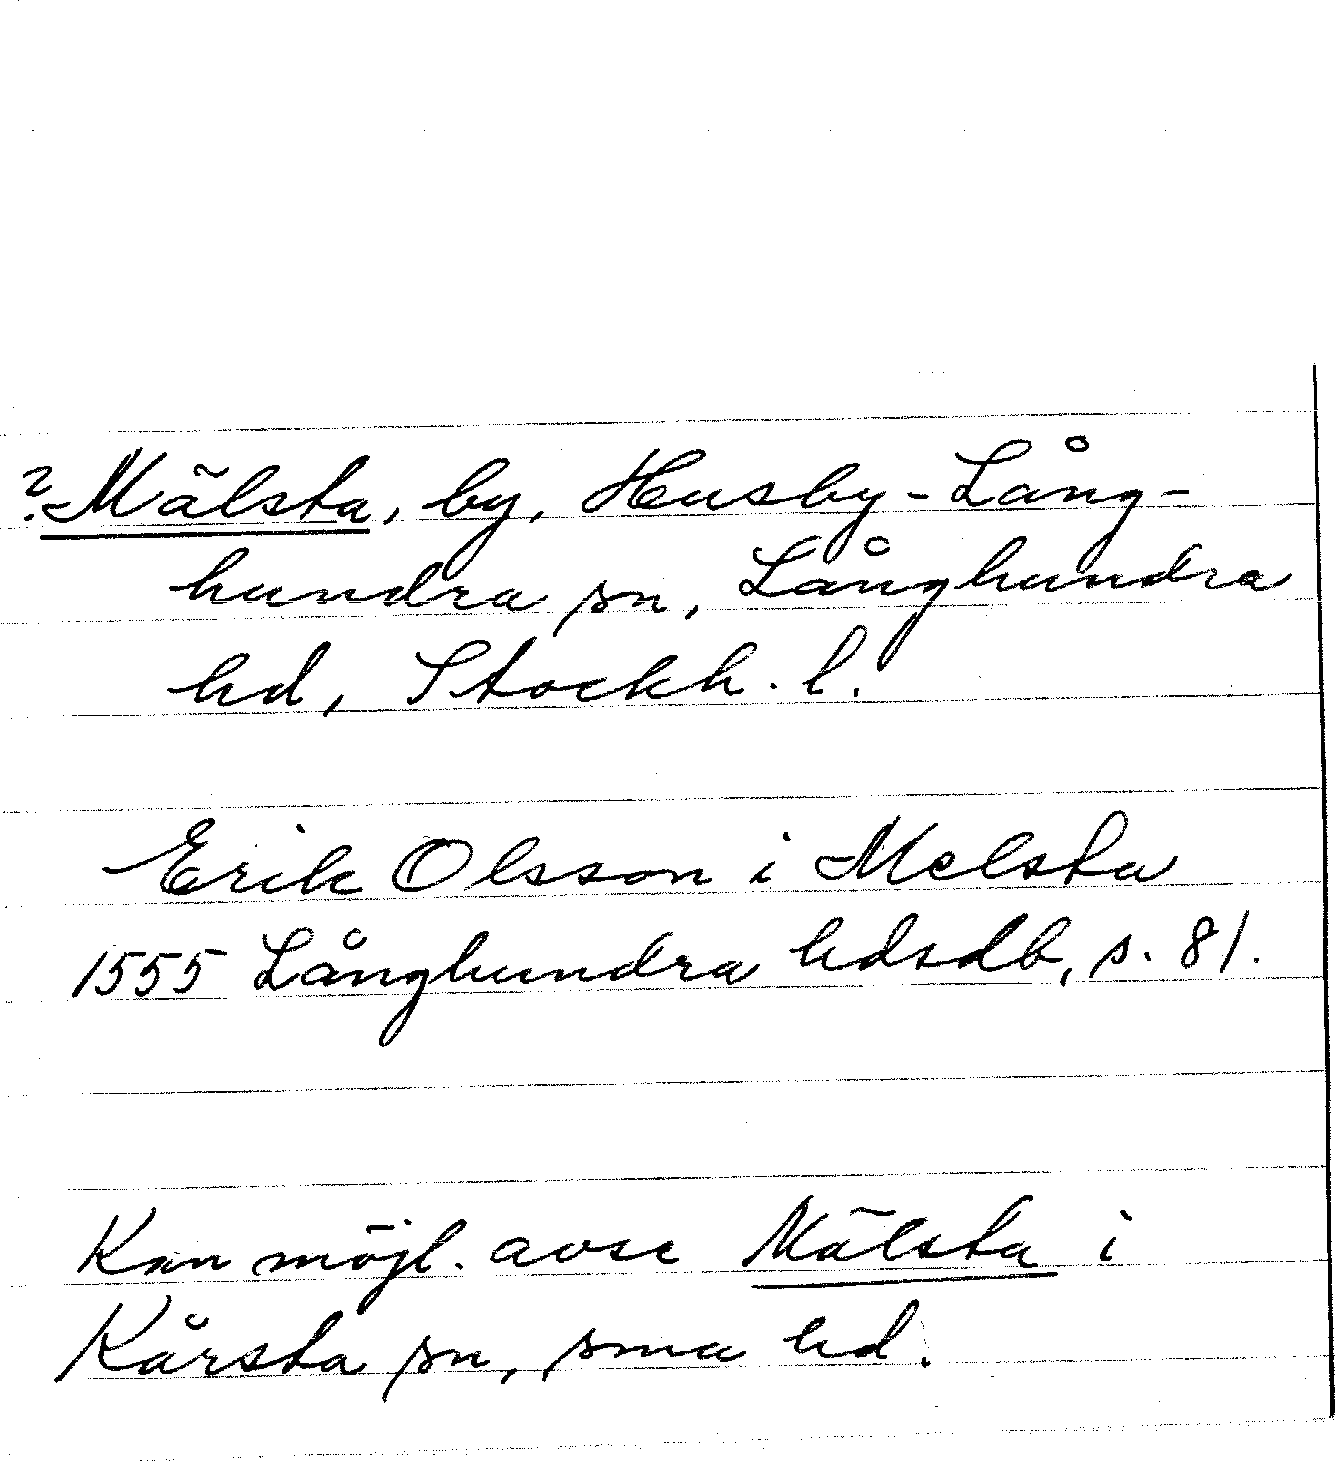 ? Mälsta, by, Husby-Lång-
hundra sn, Långhundra
hd, Stockh. l.
Erik Olsson i Melsta
1555 Långhundra hdsdb, s. 81.
Kan möjl. avse Mälsta i
Kårsta sn, sma hd.